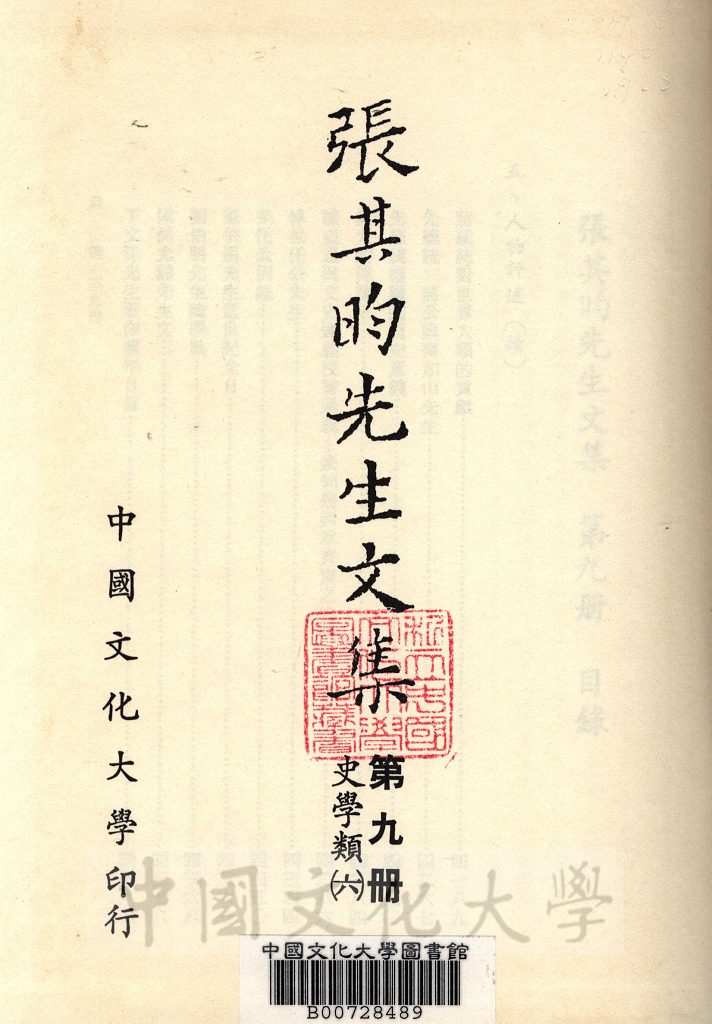 張其昀先生文集
第九冊
史學類㈥
中國文化大學印行
中國文化大學
中國文化大學圖書館
B00728489